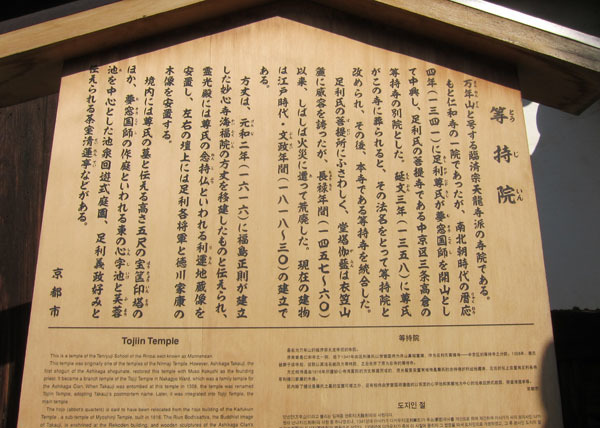 等持院
とう じ いん
万年山と号する臨済宗天龍寺派の寺院である。
もと仁和寺の一院であったが、南北朝時代の暦応
四年(一三四一)に足利尊氏が夢窓国師を開山とし
て中興し、足利氏の菩提寺である中京区三条高倉の
等持寺の別院とした。延文三年(一三五八)に尊氏
がこの寺に葬られると、その法名をとって等持院と
改められ、その後、本寺である等持寺を統合した。
足利氏の菩提所にふさわしく、堂塔伽藍は衣笠山
麓に威容を誇ったが、長禄年間(一四五七〜六〇)
以来、しばしば火災に遭って荒廃した。現在の建物
は江戸時代・文政年間(一八一八〜三〇)の建立で
ある。
方丈は、元和二年(一六一六)に福島正則が建立
した妙心寺海福院の方丈を移建したものと伝えられ、
霊光殿には尊氏の念持仏といわれる利運地蔵像を
安置し、左右の壇上には足利各将軍と徳川家康の
木像を安置する。
境内には尊氏の墓と伝える高さ五尺の宝篋印塔の
ほか、夢窓国師の作庭といわれる東の心字池と芙蓉
池を中心とした池泉回遊式庭園、足利義政好みと
伝えられる茶室清漣亭などがある。
京都市
Tojiin Temple
This is a temple of the Tenryuji School of the Rinzai sect known as Mannenzan.
This temple was originally one of the temples of the Ninnaji Temple. However, Ashikaga Takauji, the
first shogun of the Ashikaga shogunate, restored this temple with Muso Kokushi as the founding
priest. It became a branch temple of the Toji Temple in Nakagyo Ward, which was a family temple for
the Ashikaga Clan. When Takauji was entombed at this temple in 1358, the temple was renamed
Tojiin Temple, adopting Takauji's posthumous name. Later, it was integrated into Toji Temple, the
main temple.
The hojo (abbot's quarters) is said to have been relocated from the hojo building of the Kaifukuin
Temple, a sub-temple of Myoshinji Temple, built in 1616. The Riun Bodhisattva, the Buddhist image
of Takauji, is enshrined at the Reikoden building, and wooden sculptures of the Ashikaga Clan's
等持院
도지인 절